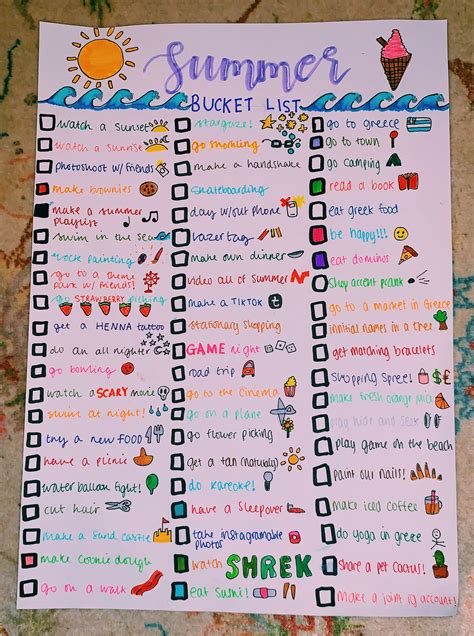 Summer
BUCKET LIST
watch a sunset
watch a sunrise
photoshoot w/ friends
make brownies
make a summer
playlist
swim in the sea
rock painting
go to a theme
park w/ friends!
go STRAWBERRY picking
get a HENNA tattoo
do an all nighter
go bowling
watch a SCARY movie
swim at night!
try a new FOOD
have a picnic
water balloon fight!
cut hair
make a sand castle
make cookie dough
go on a walk
stargaze!
go snorkling
make a handshake
skateboarding
day w/out phone
lazer tag
make own dinner
video all of summer
make a TIKTOK
stationary shopping
GAME night
road trip
go to the cinema
go on a plane
go flower picking
get a tan (naturally)
do kareoke!
have a sleepover
take instagramable
photos
watch SHREK
eat sushi!
go to greece
go to town
go camping
read a book
eat greek food
be happy!!!
eat dominos
shop accent prank
go to a market in Greece
innitial names in a tree
get matching bracelets
shopping spree! $£
make fresh orange juice
play hide and seek
play game on the beach
paint our nails!
make iced coffee
do yoga in greece
share a pet cactus!
make a joint ig account!